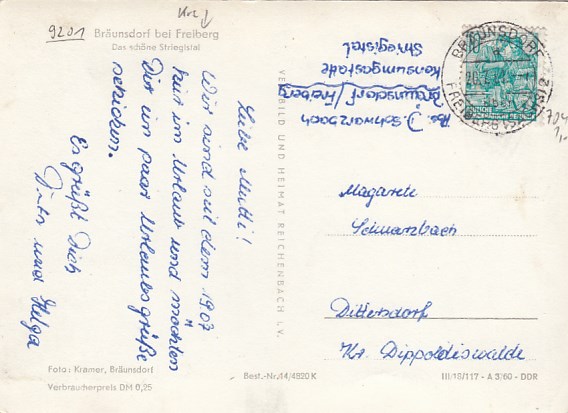 9201
Bräunsdorf bei Freiberg
Das schöne Striegistal
Liebe Mutti!
Wir sind seit dem 19.07
hier im Urlaub und möchten
Dir ein paar Urlaubsgrüße
schicken.
Es grüßt Dich
Dieter und Helga
Foto: Kramer, Bräunsdorf
Verbraucherpreis DM 0,25
VERLAG BILD UND HEIMAT REICHENBACH I.V.
Best.-Nr. 14/4820 K
Abs. D. Schwarzbach
Bräunsdorf/Freiberg
Konsumgaststätte
Striegistal
BRÄUNSDORF
Magarete
Schwarzbach
Dittersdorf
Kr. Dippoldiswalde
III/18/117 - A 3/60 - DDR